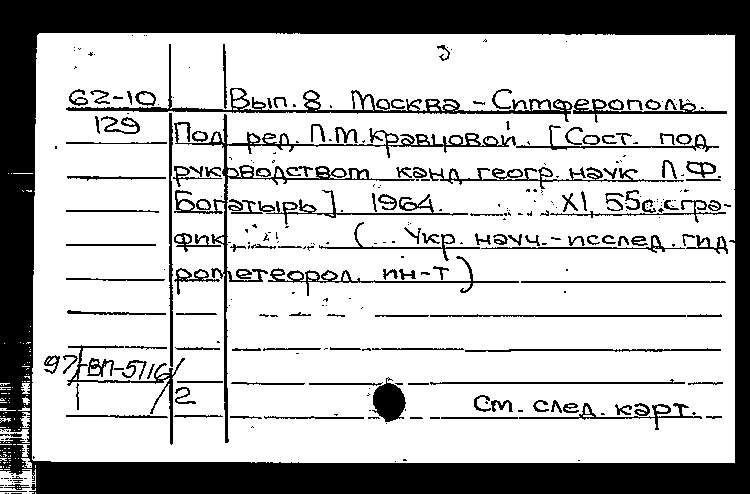 62-10 Вып. 8. Москва - Симферополь.
129 Под ред. Л.М. Кравцовой. [Сост. под
руководством канд. геогр. наук Л.Ф.
Богатырь]. 1964. XI, 55с. с гра-
фик. (... Укр. науч.-исслед. гид-
рометеорол. ин-т)
97/-ВП-5716/
2 См. след. карт.